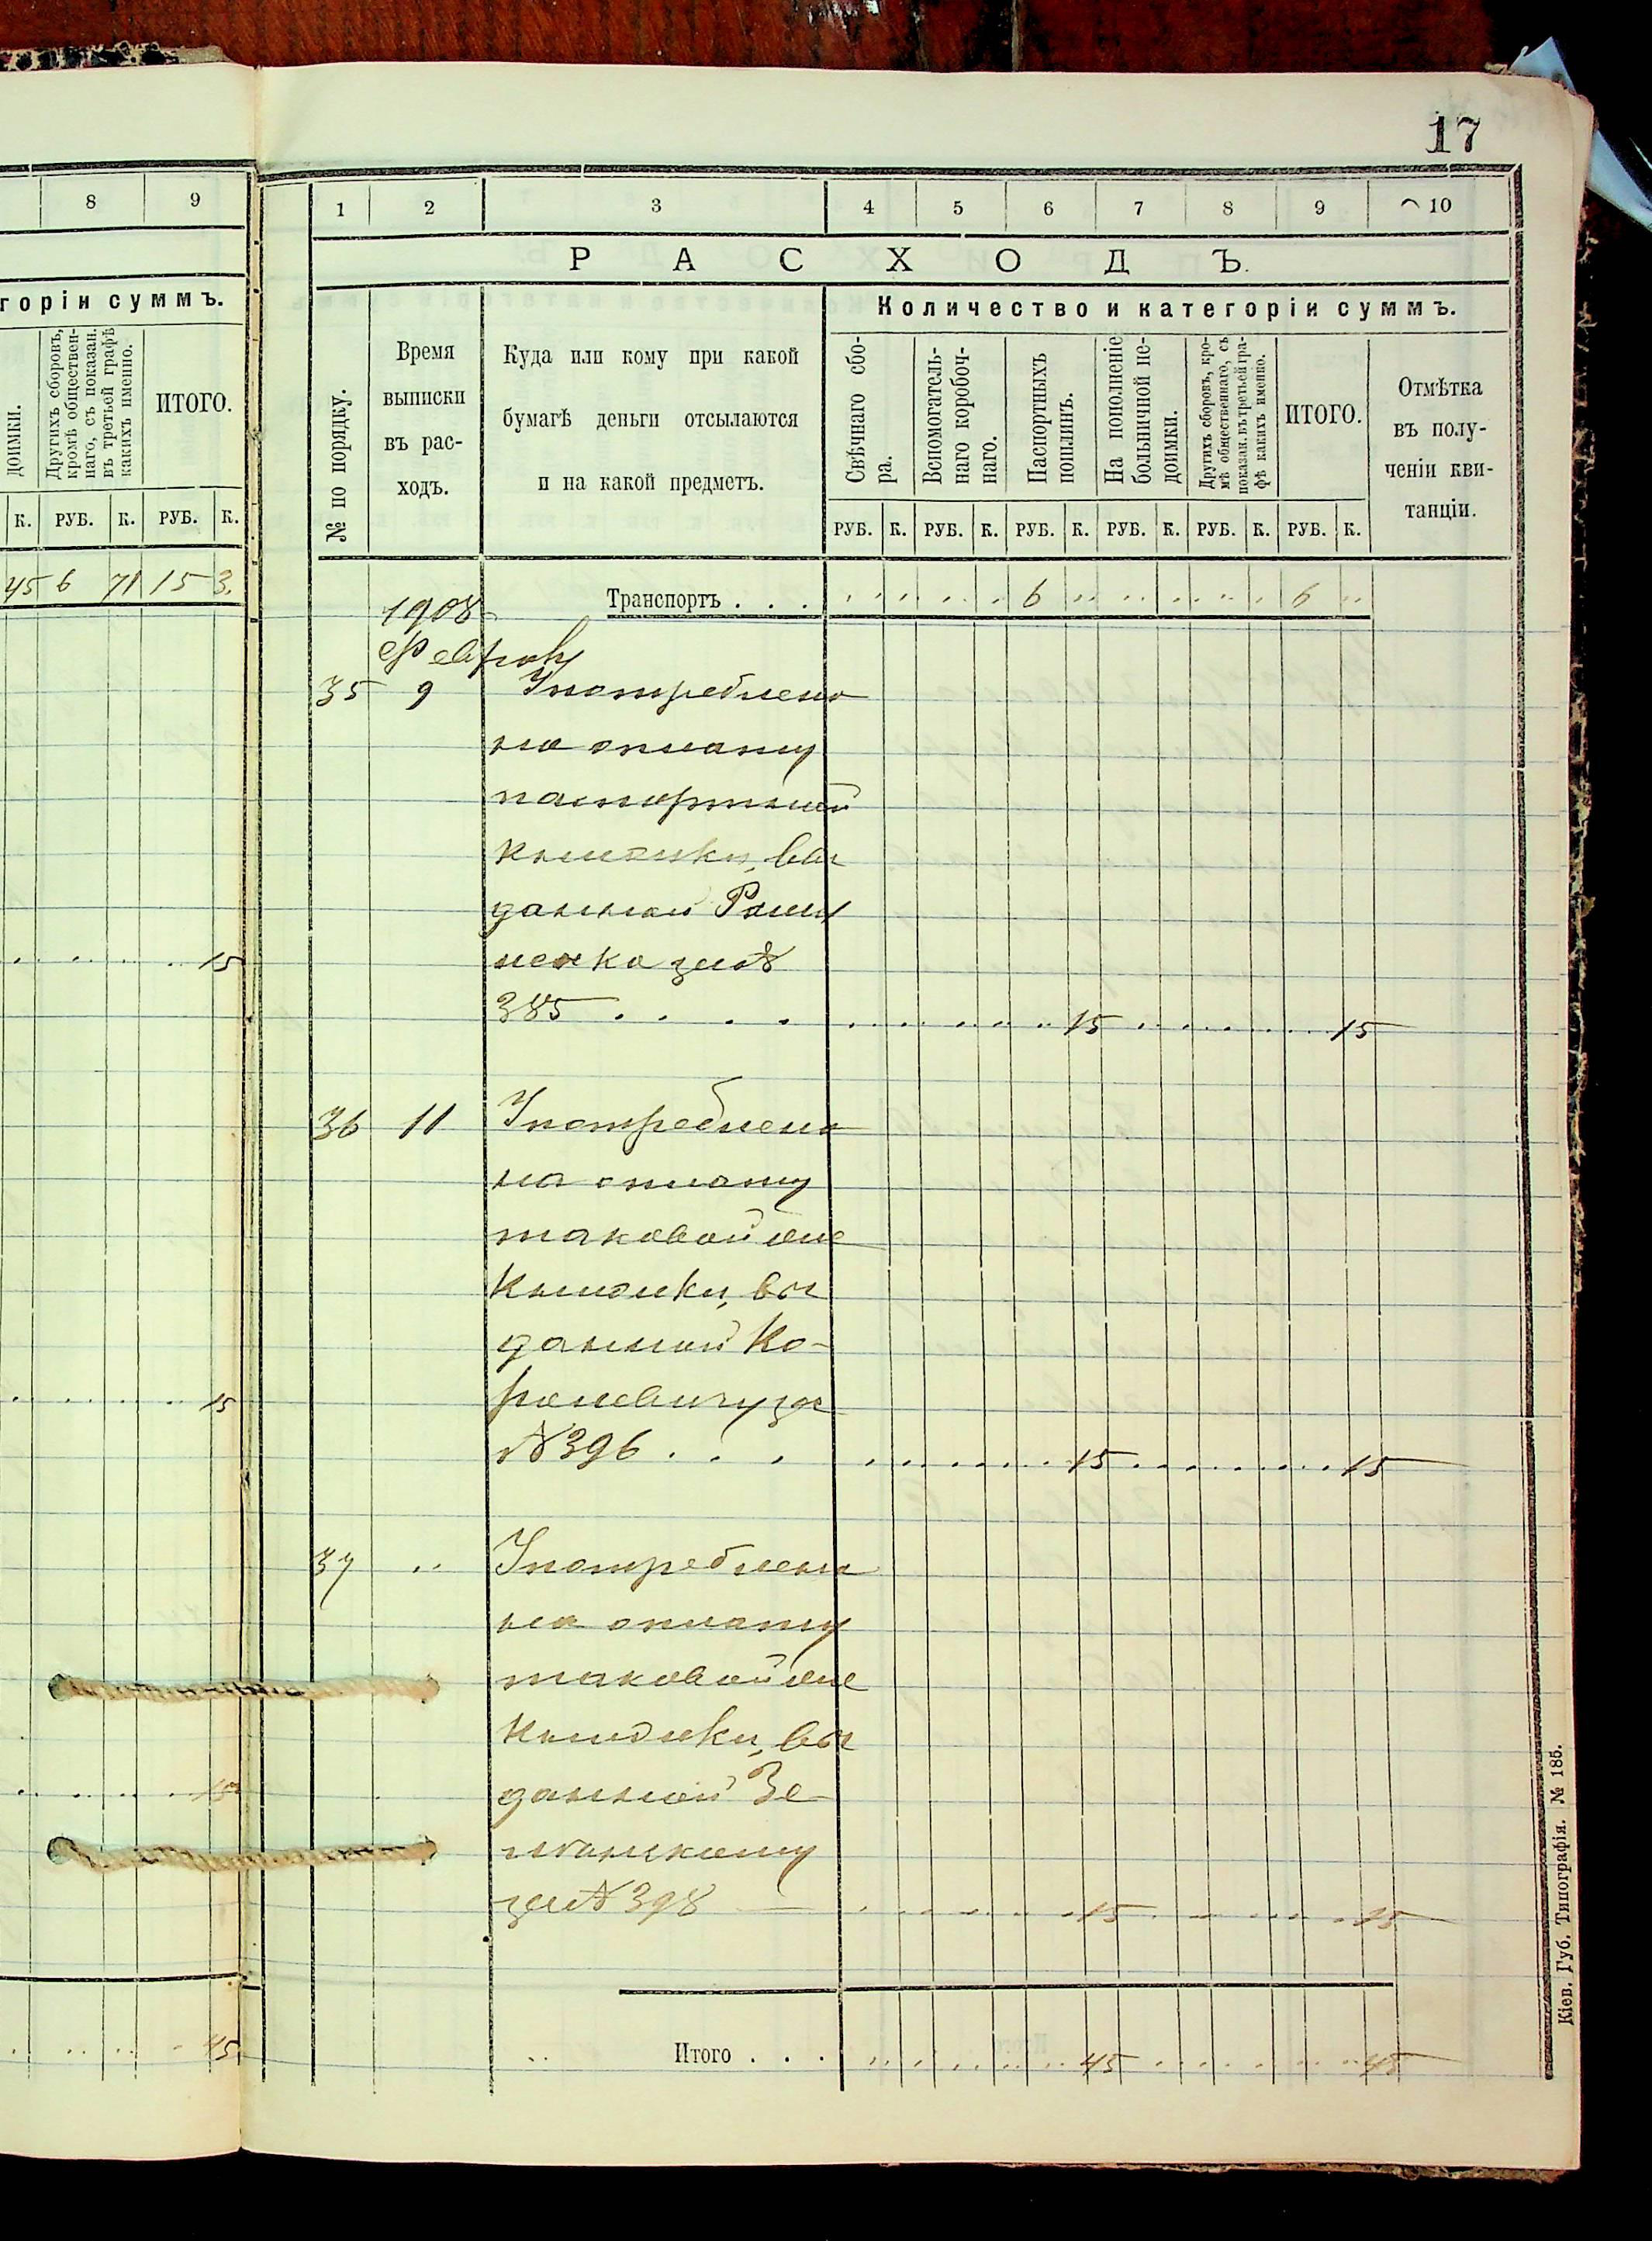 17
8 9
горіи суммъ.
доимки.
Другихъ сборовъ,
кромѣ обществен-
наго, съ показан.
въ третьей графѣ
какихъ именно.
ИТОГО.
К. РУБ. К. РУБ. К.
45 6 71 15 3.
15
15
15
45
1 2 3 4 5 6 7 8 9 10
РАСХОДЪ.
Количество и категоріи суммъ.
№ по порядку.
Время
выписки
въ рас-
ходъ.
Куда или кому при какой
бумагѣ деньги отсылаются
и на какой предметъ.
Свѣчнаго сбо-
ра.
Вспомогатель-
наго коробоч-
наго.
Паспортныхъ
пошлинъ.
На пополненіе
больничной не-
доимки.
Другихъ сборовъ, кро-
мѣ общественнаго, съ
показан. въ третьей гра-
фѣ какихъ именно.
ИТОГО.
Отмѣтка
въ полу-
ченіи кви-
танціи.
РУБ. К. РУБ. К. РУБ. К. РУБ. К. РУБ. К. РУБ. К.
Транспортъ . . . 6 6
1908
Февраль
35 9 Употреблено
на оплату
паспортной
книжки, вы
данной
за №
385 . . . . 15 15
36 11 Употреблено
на оплату
таковой же
книжки, вы
данной Ко-
ролевичу за
№ 396 . . . 15 15
37 " Употреблено
на оплату
таковой же
книжки, вы
данной Зе-
за № 398 — 15 15
Итого . . . 45 45
Кіев. Губ. Типографія. № 185.